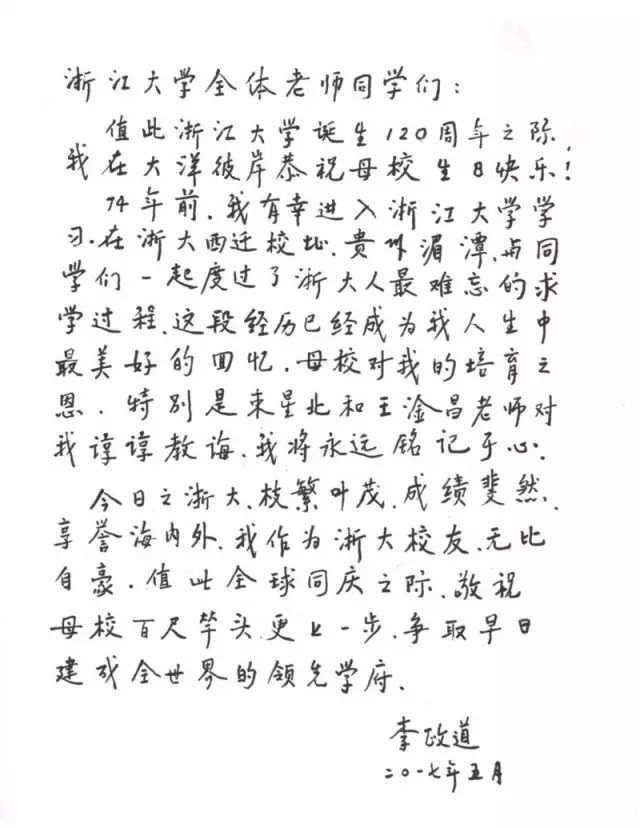 浙江大学全体老师同学们:
值此浙江大学诞生120周年之际
我在大洋彼岸恭祝母校生日快乐!
74年前,我有幸进入浙江大学学
习.在浙大西迁校址,贵州湄潭,与同
学们一起度过了浙大人最难忘的求
学过程.这段经历已经成为我人生中
最美好的回忆.母校对我的培育之
恩.特别是束星北和王淦昌老师对
我谆谆教诲,我将永远铭记于心.
今日之浙大,枝繁叶茂,成绩斐然.
享誉海内外,我作为浙大校友,无比
自豪.值此全球同庆之际,敬祝
母校百尺竿头更上一步,争取早日
建成全世界的领先学府.
李政道
二〇一七年五月